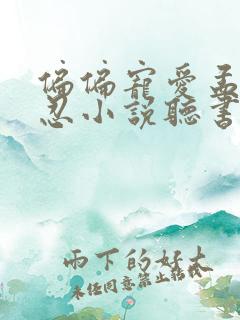 偏偏寵愛孟
忍小說聽書
雨下的好大
未经同意禁止转载